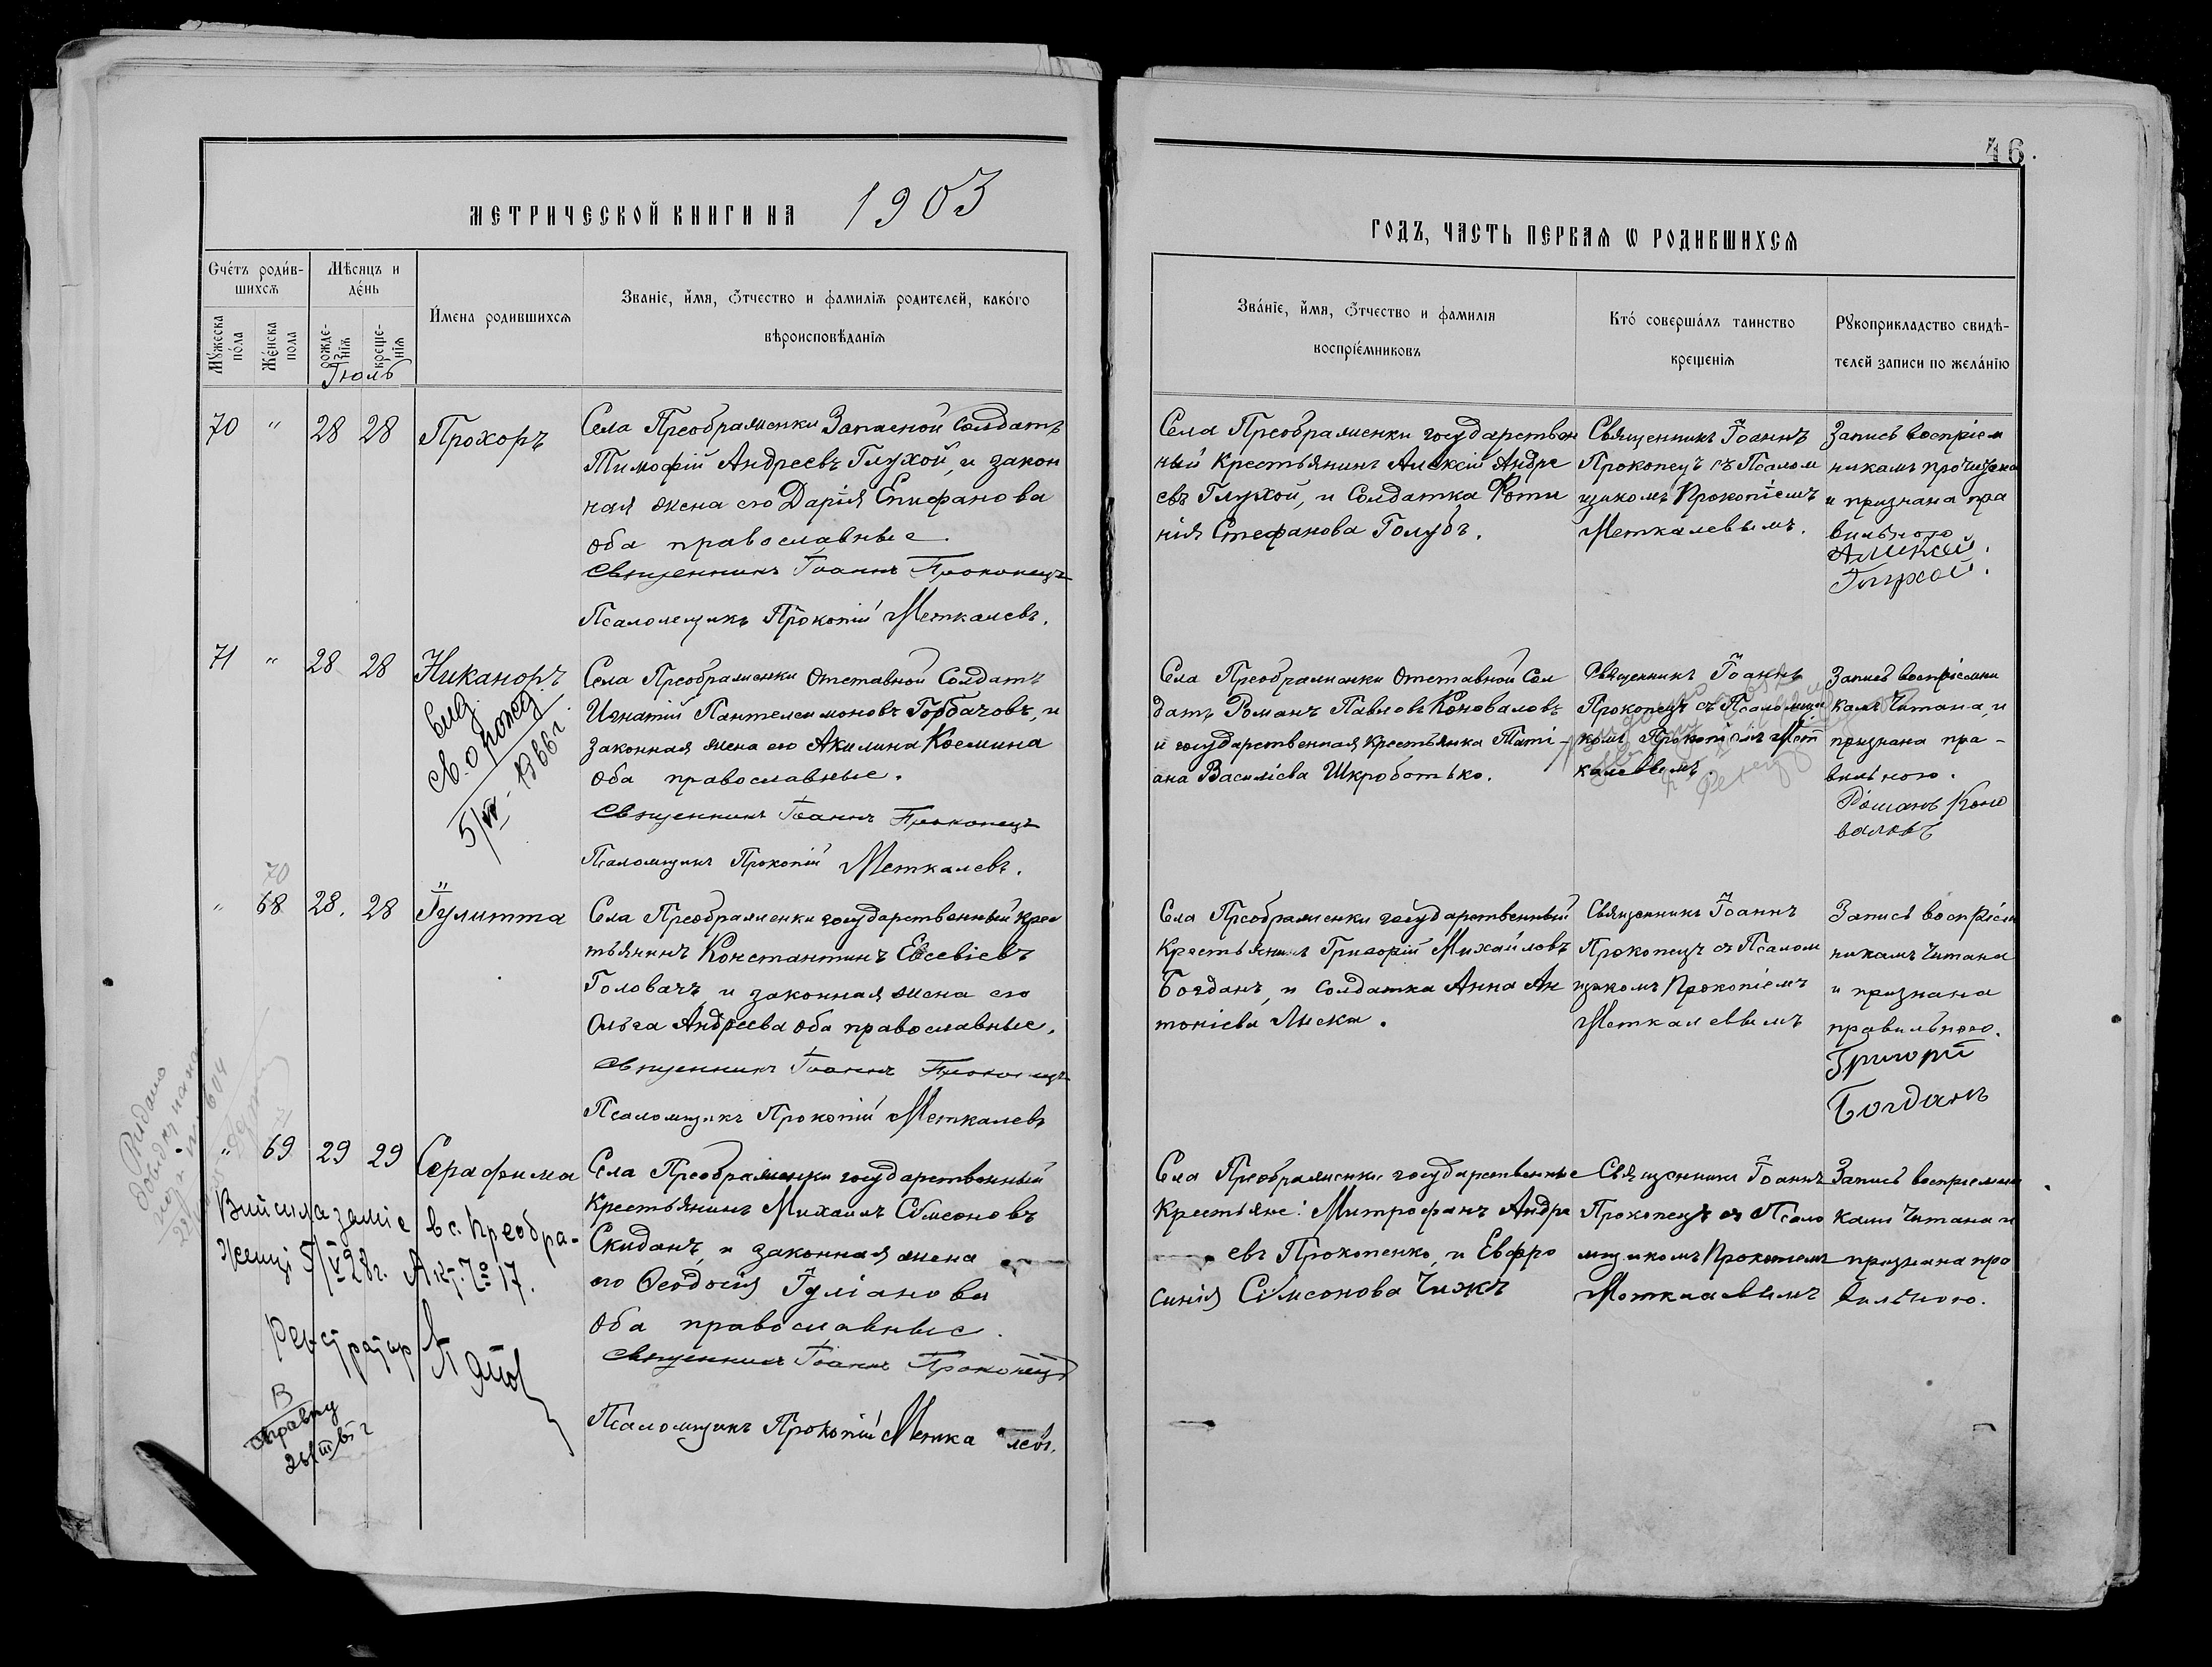 46.
МЕТРИЧЕСКОЙ КНИГИ НА 1903
ГОДЪ, ЧАСТЬ ПЕРВАѦ Ѡ РОДИВШИХСѦ
Счéтъ роди́в-
шихсѧ
Мѣсяцъ и
дéнь
Му́жеска
по́ла
Жéнска
пола
рожде-
нїѧ
креще-
нїѧ
Іюль
И́мена родившихсѧ
Званїе, и́мя, ѻ́тчество и фамилїѧ родителей, како́го
вѣроисповѣданїѧ
Зва́нїе, и́мя, ѻ́тчество и фамилїя
воспрїе́мниковъ
Кто́ соверша́лъ таинство
крещенїѧ
Рꙋкоприкладство свидѣ-
телей записи по жела́нїю
70 " 28 28 Прохоръ
Села Преображенки Запасной Солдатъ
Тимофій Андреевъ Глухой, и закон
ная жена его Дарія Епифанова
оба православные.
Священникъ Іоаннъ Прокопецъ
Псаломщикъ Прокопій Меткалевъ.
Села Преображенки государствен
ный Крестьянинъ Алексій Андре
евъ Глухой, и Солдатка Фоти
нія Стефанова Голубъ.
Священникъ Іоаннъ
Прокопецъ съ Псалом
щикомъ Прокопіемъ
Меткалевымъ.
Запись воспріем
никамъ прочитана
и признана пра
вильною
Алексій
Глухой.
71 " 28 28 Никаноръ
Вид.
св. о рожд.
5/VII-1966г.
Села Преображенки Отставной Солдатъ
Игнатій Пантелеимоновъ Горбачовъ, и
законная жена его Акилина Космина
оба православные.
Священникъ Іоаннъ Прокопецъ
Псаломщикъ Прокопій Меткалевъ.
Села Преображенки Отставной Сол
датъ Романъ Павловъ Коноваловъ
и государственная крестьянка Таті-
ана Василіева Шкроботько.
Священникъ Іоаннъ
Прокопецъ съ Псаломщи
комъ Прокопіемъ Мет
калевымъ.
Запись воспріемни
камъ Читана, и
признана пра-
вильною.
Романъ Коно
валовъ
70
" 68 28. 28 Іулитта
Села Преображенки государственный крес
тьянинъ Константинъ Евсевіевъ
Головачъ, и законная жена его
Ольга Андреева оба православные.
Священникъ Іоаннъ Прокопецъ
Псаломщикъ Прокопій Меткалевъ
Села Преображенки государственный
Крестьянинъ Григорій Михайловъ
Богданъ, и Солдатка Анна Ан
тоніева Лиска.
Священникъ Іоаннъ
Прокопецъ съ Псалом
щикомъ Прокопіемъ
Меткалевымъ
Запись воспріем
никамъ Читана
и признана
правильною.
Григорій
Богданъ
" 69 29 29 Серафима
Села Преображенки государственный
Крестьянинъ Михаилъ Сѵмеоновъ
Скиданъ, и законная жена
его Ѳеодосія Іуліанова
оба православные.
Священникъ Іоаннъ Прокопецъ
Псаломщикъ Прокопій Меткалевъ.
Села Преображенки государственные
Крестьяне: Митрофанъ Андре
евъ Прокопенко, и Евфро
синія Сѵмеонова Чижъ
Священникъ Іоаннъ
Прокопецъ съ Псало
мщикомъ Прокопіемъ
Меткалевымъ
Запись воспріемни
камъ Читана и
признана пра
вильною.
Видано
довідку
Вийшла заміє в с. Преобра-
женці 5/V 28г. Акт. № 17.
Реєстратор
В
справку